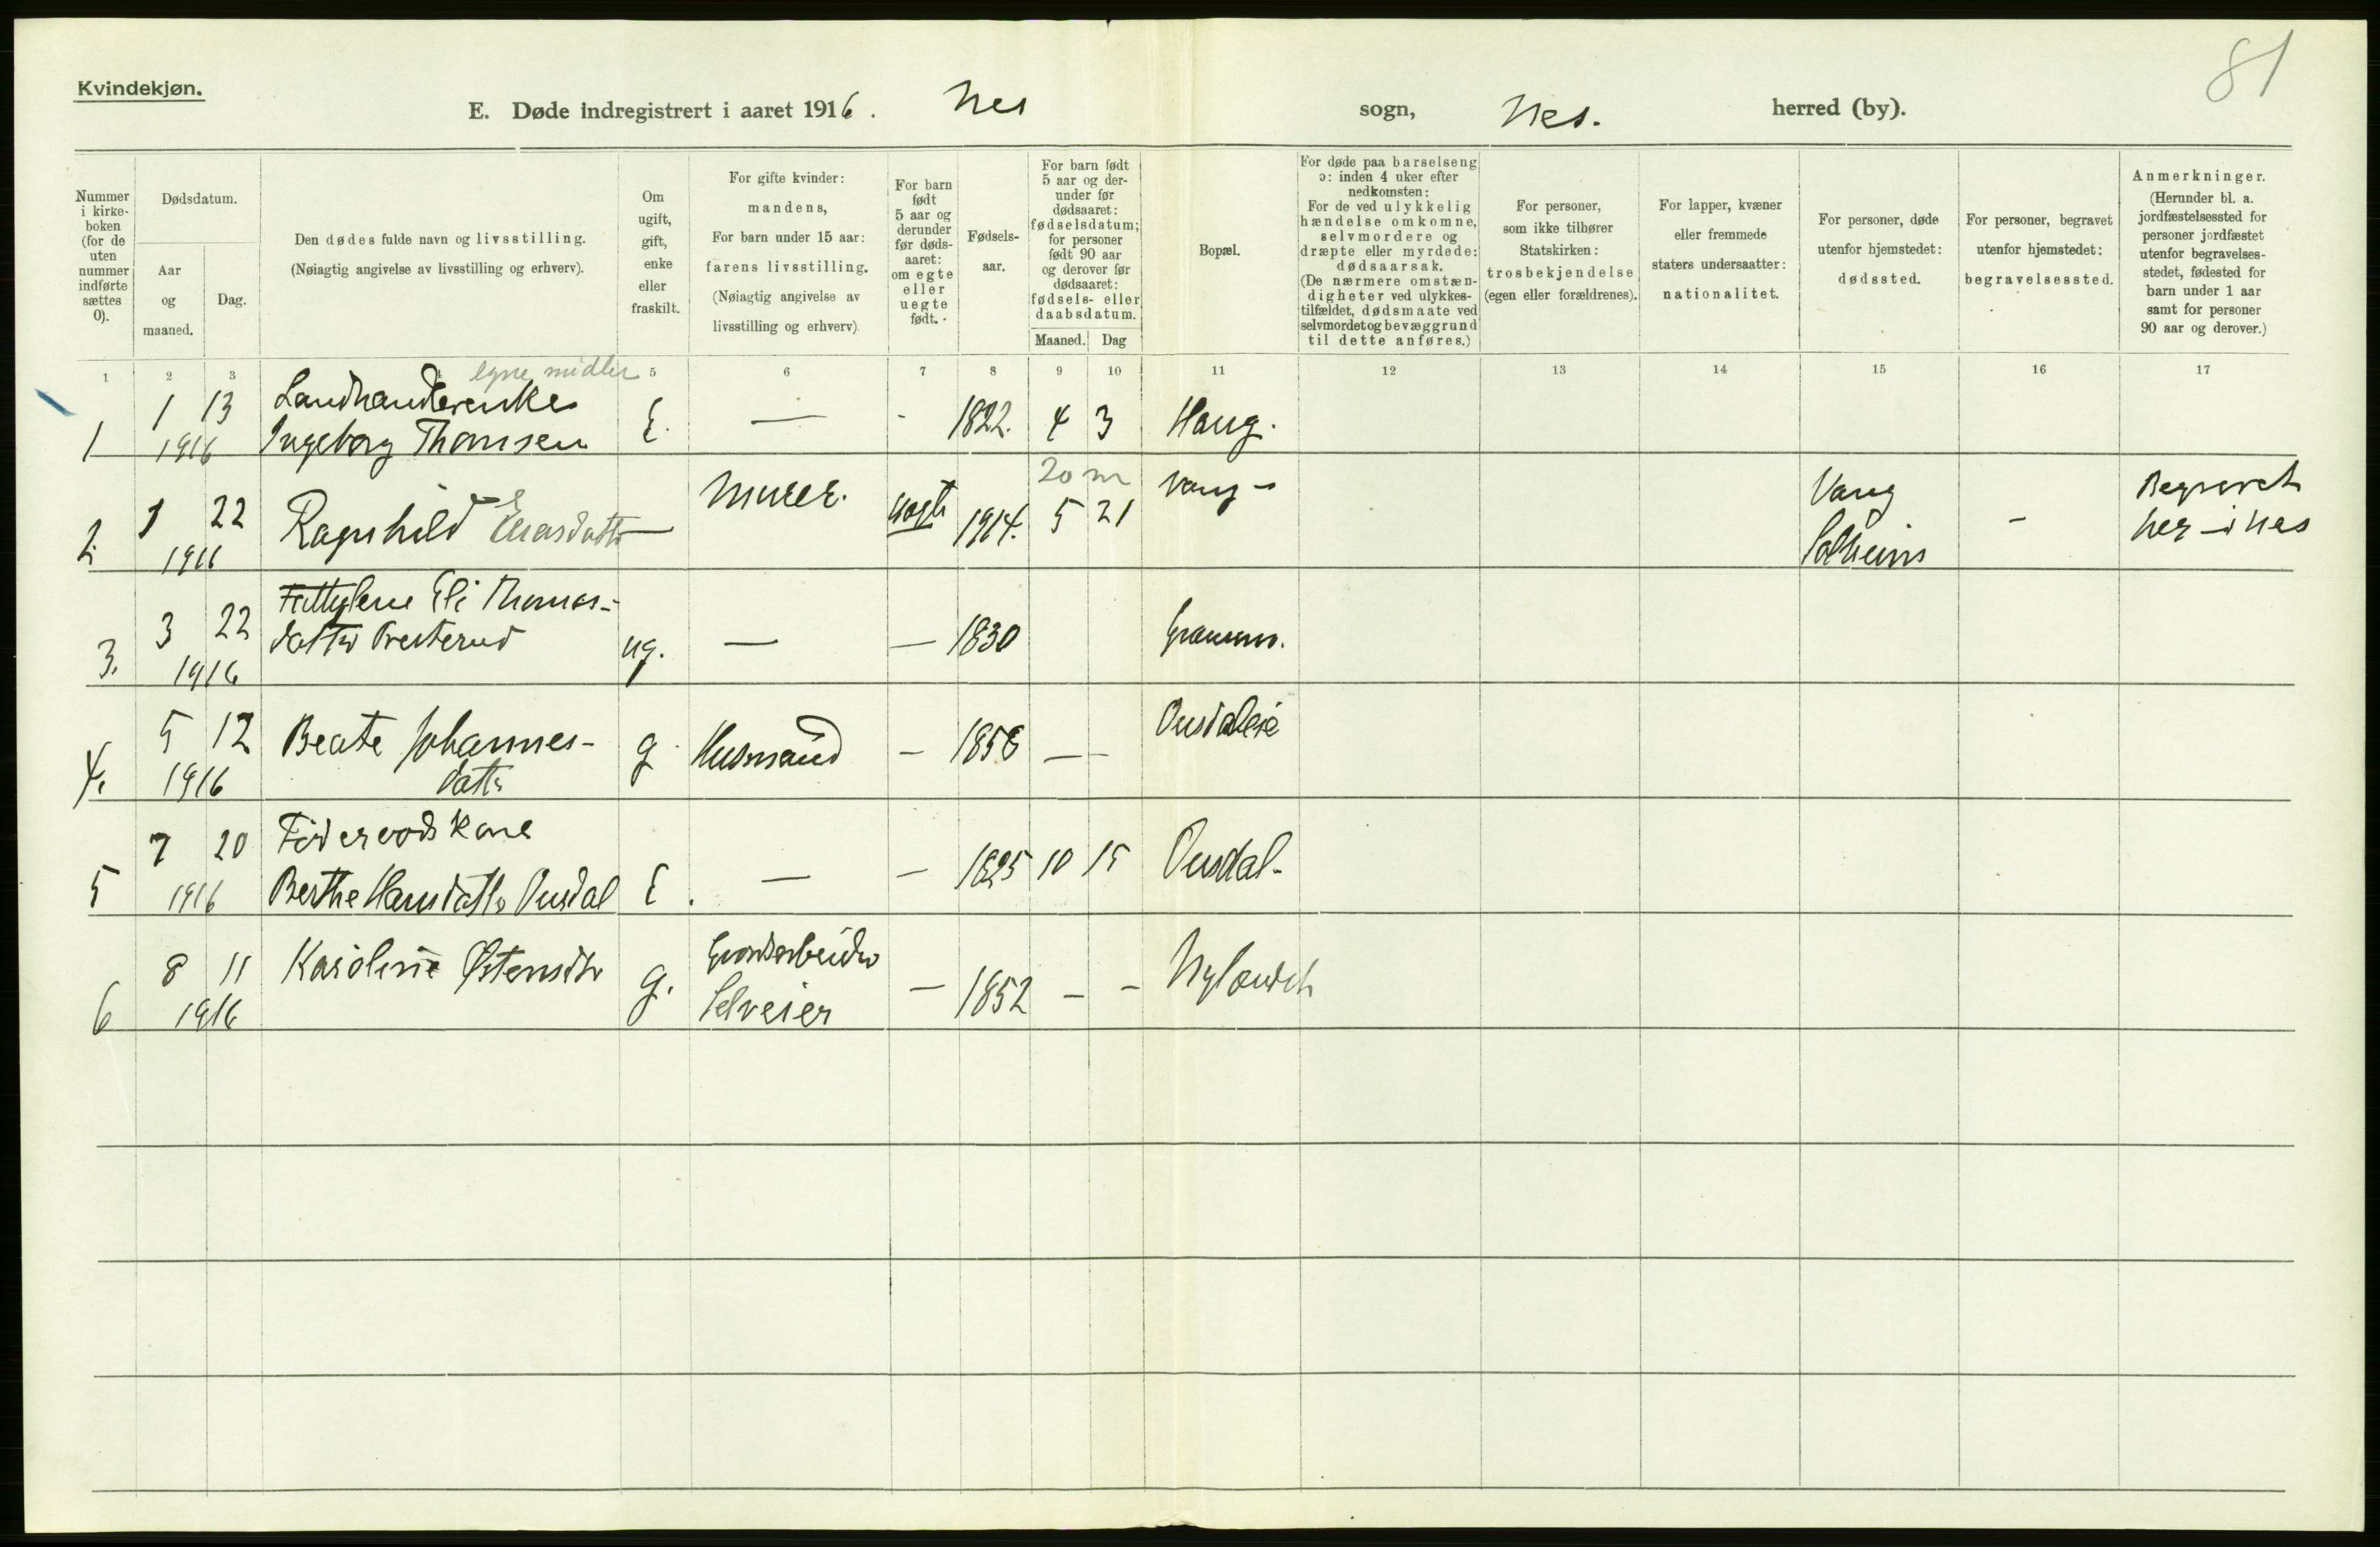 81
Kvindekjøn.
E. Døde indregistrert i aaret 1916. Nes sogn, Nes. herred (by).
Nummer i kirke-boken (for de uten nummer indførte sættes 0).
Dødsdatum.
Aar og maaned.
Dag.
Den dødes fulde navn og livsstilling.
(Nøiagtig angivelse av livsstilling og erhverv).
Om ugift, gift, enke eller fraskilt.
For gifte kvinder:
mandens,
For barn under 15 aar:
farens livsstilling.
(Nøiagtig angivelse av
livsstilling og erhverv)
For barn født 5 aar og derunder før døds-aaret: om egte eller uegte født.
Fødsels-aar.
For barn født 5 aar og der-under før dødsaaret: fødselsdatum; for personer født 90 aar og derover før dødsaaret: fødsels- eller daabsdatum.
Maaned. Dag
Bopæl.
For døde paa barselseng
ɔ: inden 4 uker efter
nedkomsten:
For de ved ulykkelig
hændelse omkomne,
selvmordere og
dræpte eller myrdede:
dødsaarsak.
(De nærmere omstæn-
digheter ved ulykkes-
tilfældet, dødsmaate ved
selvmordet og bevæggrund
til dette anføres.)
For personer,
som ikke tilhører
Statskirken:
trosbekjendelse
(egen eller forældrenes).
For lapper, kvæner
eller fremmede
staters undersaatter:
nationalitet.
For personer, døde
utenfor hjemstedet:
dødssted.
For personer, begravet
utenfor hjemstedet:
begravelsessted.
Anmerkninger.
(Herunder bl. a.
jordfæstelsessted for
personer jordfæstet
utenfor begravelses-
stedet, fødested for
barn under 1 aar
samt for personer
90 aar og derover.)
1 2 3 4 5 6 7 8 9 10 11 12 13 14 15 16 17
egne midler
1 1 13 1916 Landhandlerenke Ingeborg Thomsen E. — - 1822. 4 3 Haug.
2. 1 22 1916 Ragnhild — Murer. uegte 1914. 20 m 5 21 Vang - Vang Solheim - Begravet her i Nes
3. 3 22 1916 Eli Thomas-datter Presterud ug. — — 1830
4. 5 12 1916 Beate Johannes-datter g. Husmand — 1858 — — Ousdaleie
5 7 20 1916 Føderaads Kone Berthe Hansdatter Ousdal E. — — 1825 10 15 Ousdal-
6 8 11 1916 Karoline Østensdtr g. Selveier — 1852 — —